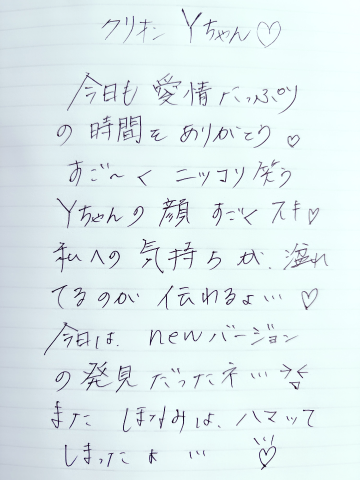 クリオン Yちゃん♡
今日も 愛情 たっぷり
の 時間を ありがとう ♡
すご〜く ニッコリ 笑う
Yちゃんの 顔 すごく スキ♡
私への 気持ち が、溢れ
てるのが 伝わるよ… ♡
今日は、newバージョン
の 発見 だったネ…
また しほみは、ハマって
しまったよ … ♡